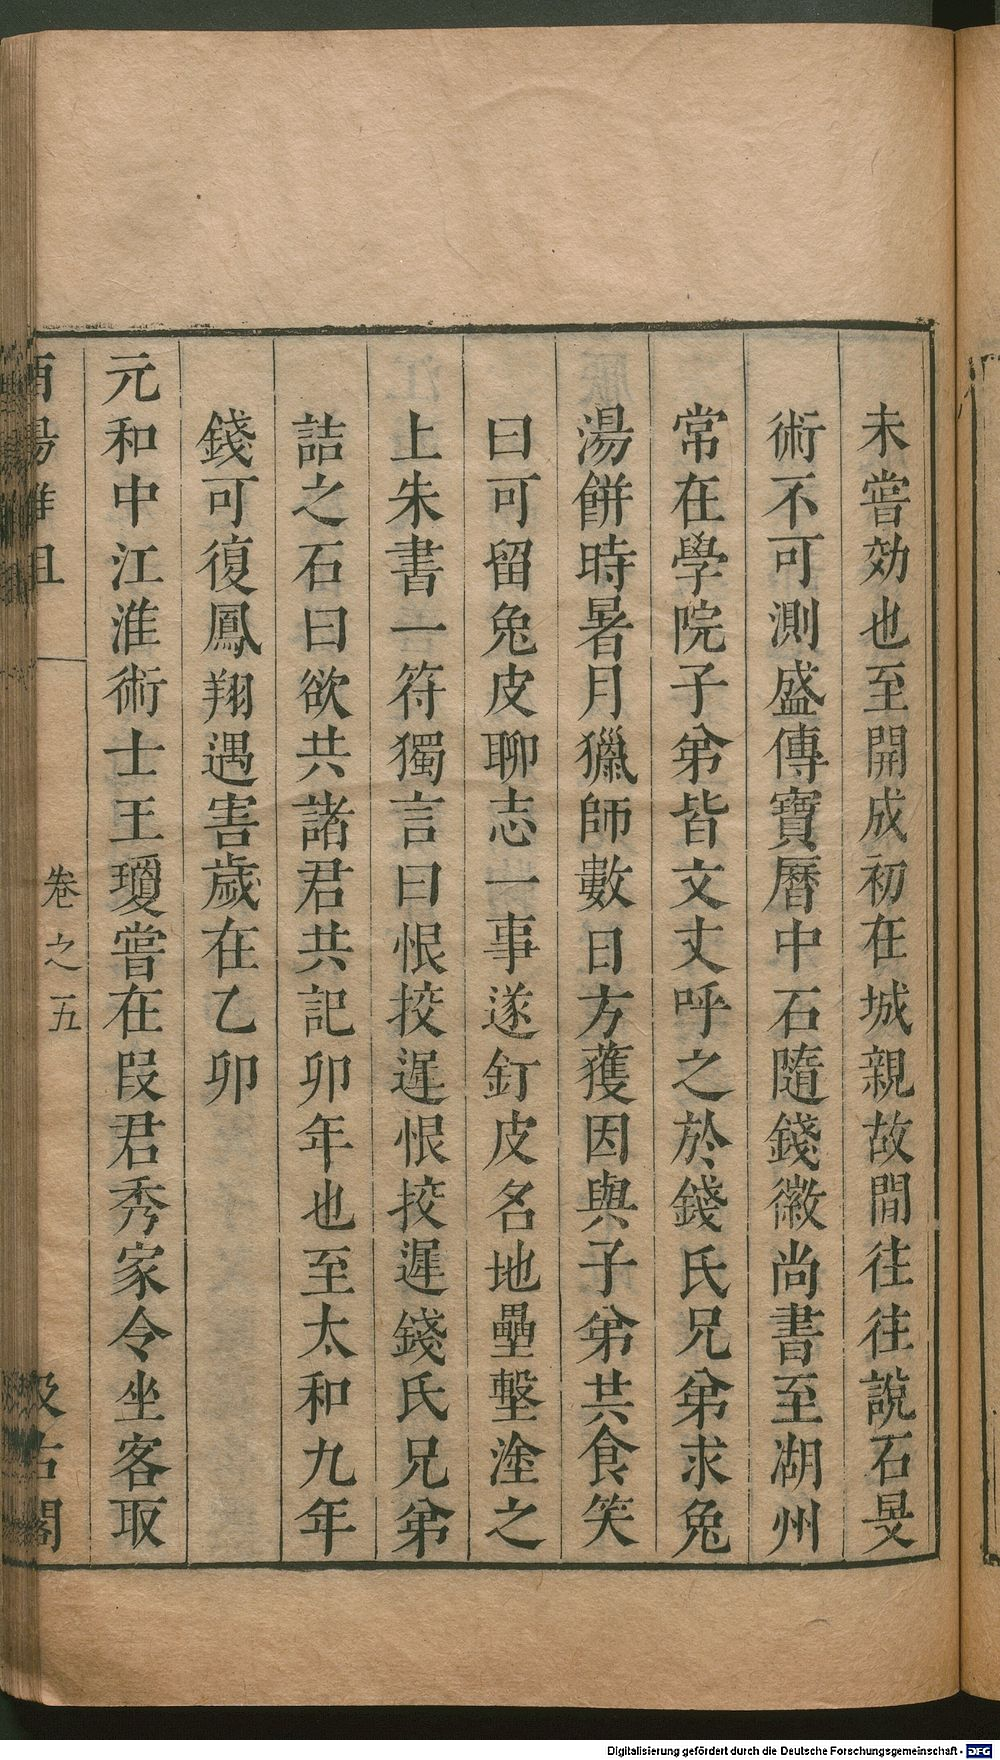 未嘗効也至開成初在城親故間往往說石旻
術不可測盛傳寶曆中石隨錢徽尚書至湖州
常在學院子弟皆文丈呼之於錢氏兄弟求兔
湯餅時暑月獵師數日方獲因與子弟共食笑
曰可留兔皮聊志一事遂釘皮名地壘墼塗之
上朱書一符獨言曰恨挍遲恨挍遲錢氏兄弟
詰之石曰欲共諸君共記卯年也至太和九年
錢可復鳳翔遇害歲在乙卯
元和中江淮術士王瓊嘗在段君秀家令坐客取
酉陽雜俎
卷之五
汲古閣
Digitalisierung gefördert durch die Deutsche Forschungsgemeinschaft - DFG